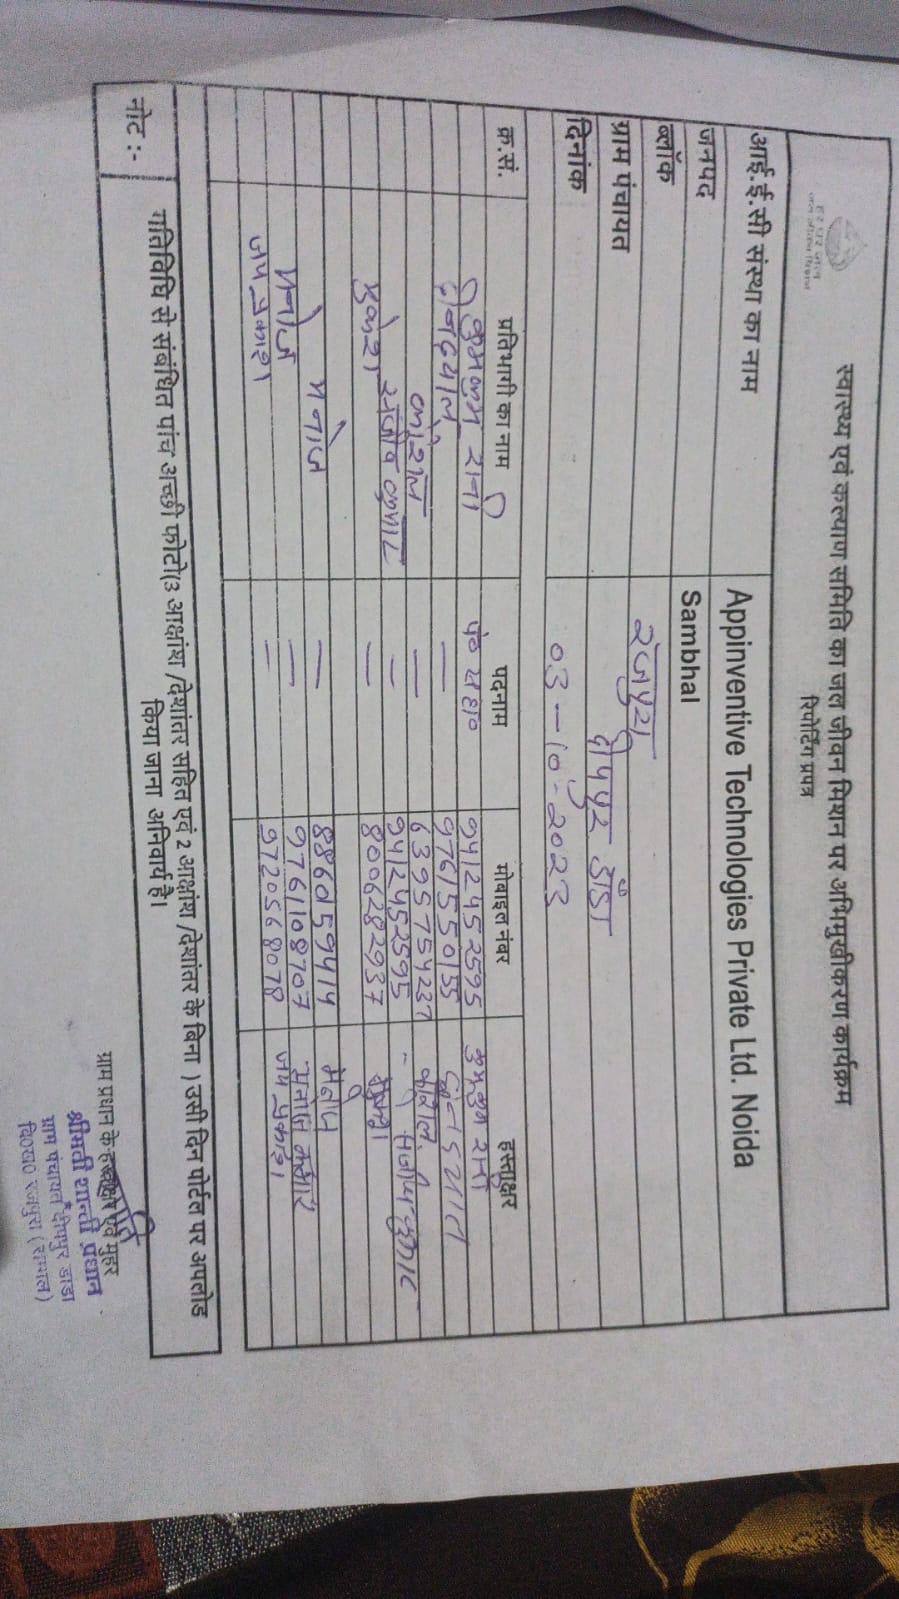 हर घर जल
जल जीवन मिशन
स्वास्थ्य एवं कल्याण समिति का जल जीवन मिशन पर अभिमुखीकरण कार्यक्रम
रिपोर्टिंग प्रपत्र
आई.ई.सी संस्था का नाम Appinventive Technologies Private Ltd. Noida
जनपद Sambhal
ब्लॉक रजपुरा
ग्राम पंचायत दीपपुर डांडा
दिनांक 03-10-2023
क्र.सं. प्रतिभागी का नाम पदनाम मोबाइल नंबर हस्ताक्षर
कुमकुम रानी 9412452595 कुमकुम रानी
9761550155
6395754237
संजीव कुमार = 9412452595
मुकेश = 8006282937
मनोज = 8860159414
मनोज = 9761108707 मनोज कुमार
जय प्रकाश = 9720568078 जय प्रकाश
नोट :- गतिविधि से संबंधित पांच अच्छी फोटो(3 आक्षांश /देशांतर सहित एवं 2 आक्षांश /देशांतर के बिना ) उसी दिन पोर्टल पर अपलोड
किया जाना अनिवार्य है।
ग्राम प्रधान के हस्ताक्षर एवं मुहर
श्रीमती शान्ती प्रधान
ग्राम पंचायत दीपपुर डांडा
वि0ख0 रजपुरा (सम्भल)